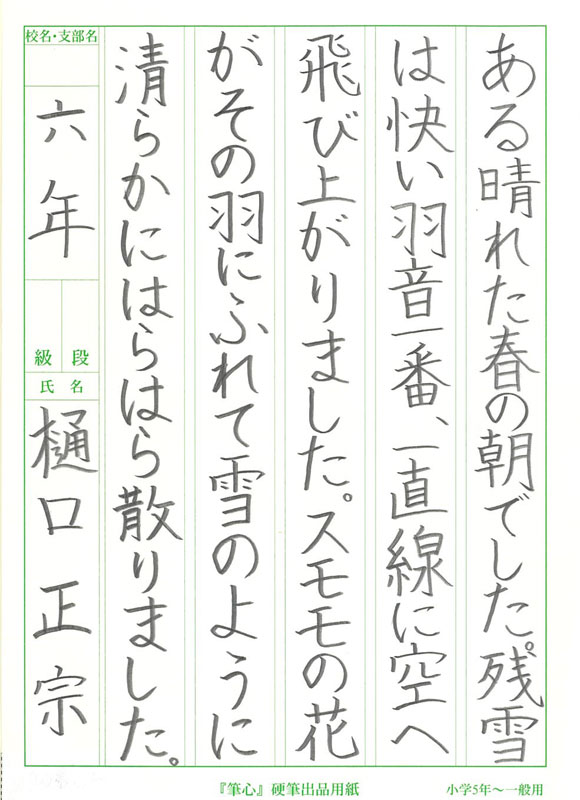 ある晴れた春の朝でした。残雪
は快い羽音一番、一直線に空へ
飛び上がりました。スモモの花
がその羽にふれて雪のように
清らかにはらはら散りました。
校名・支部名
六年
級 段
氏名
樋口正宗
『筆心』硬筆出品用紙
小学5年〜一般用